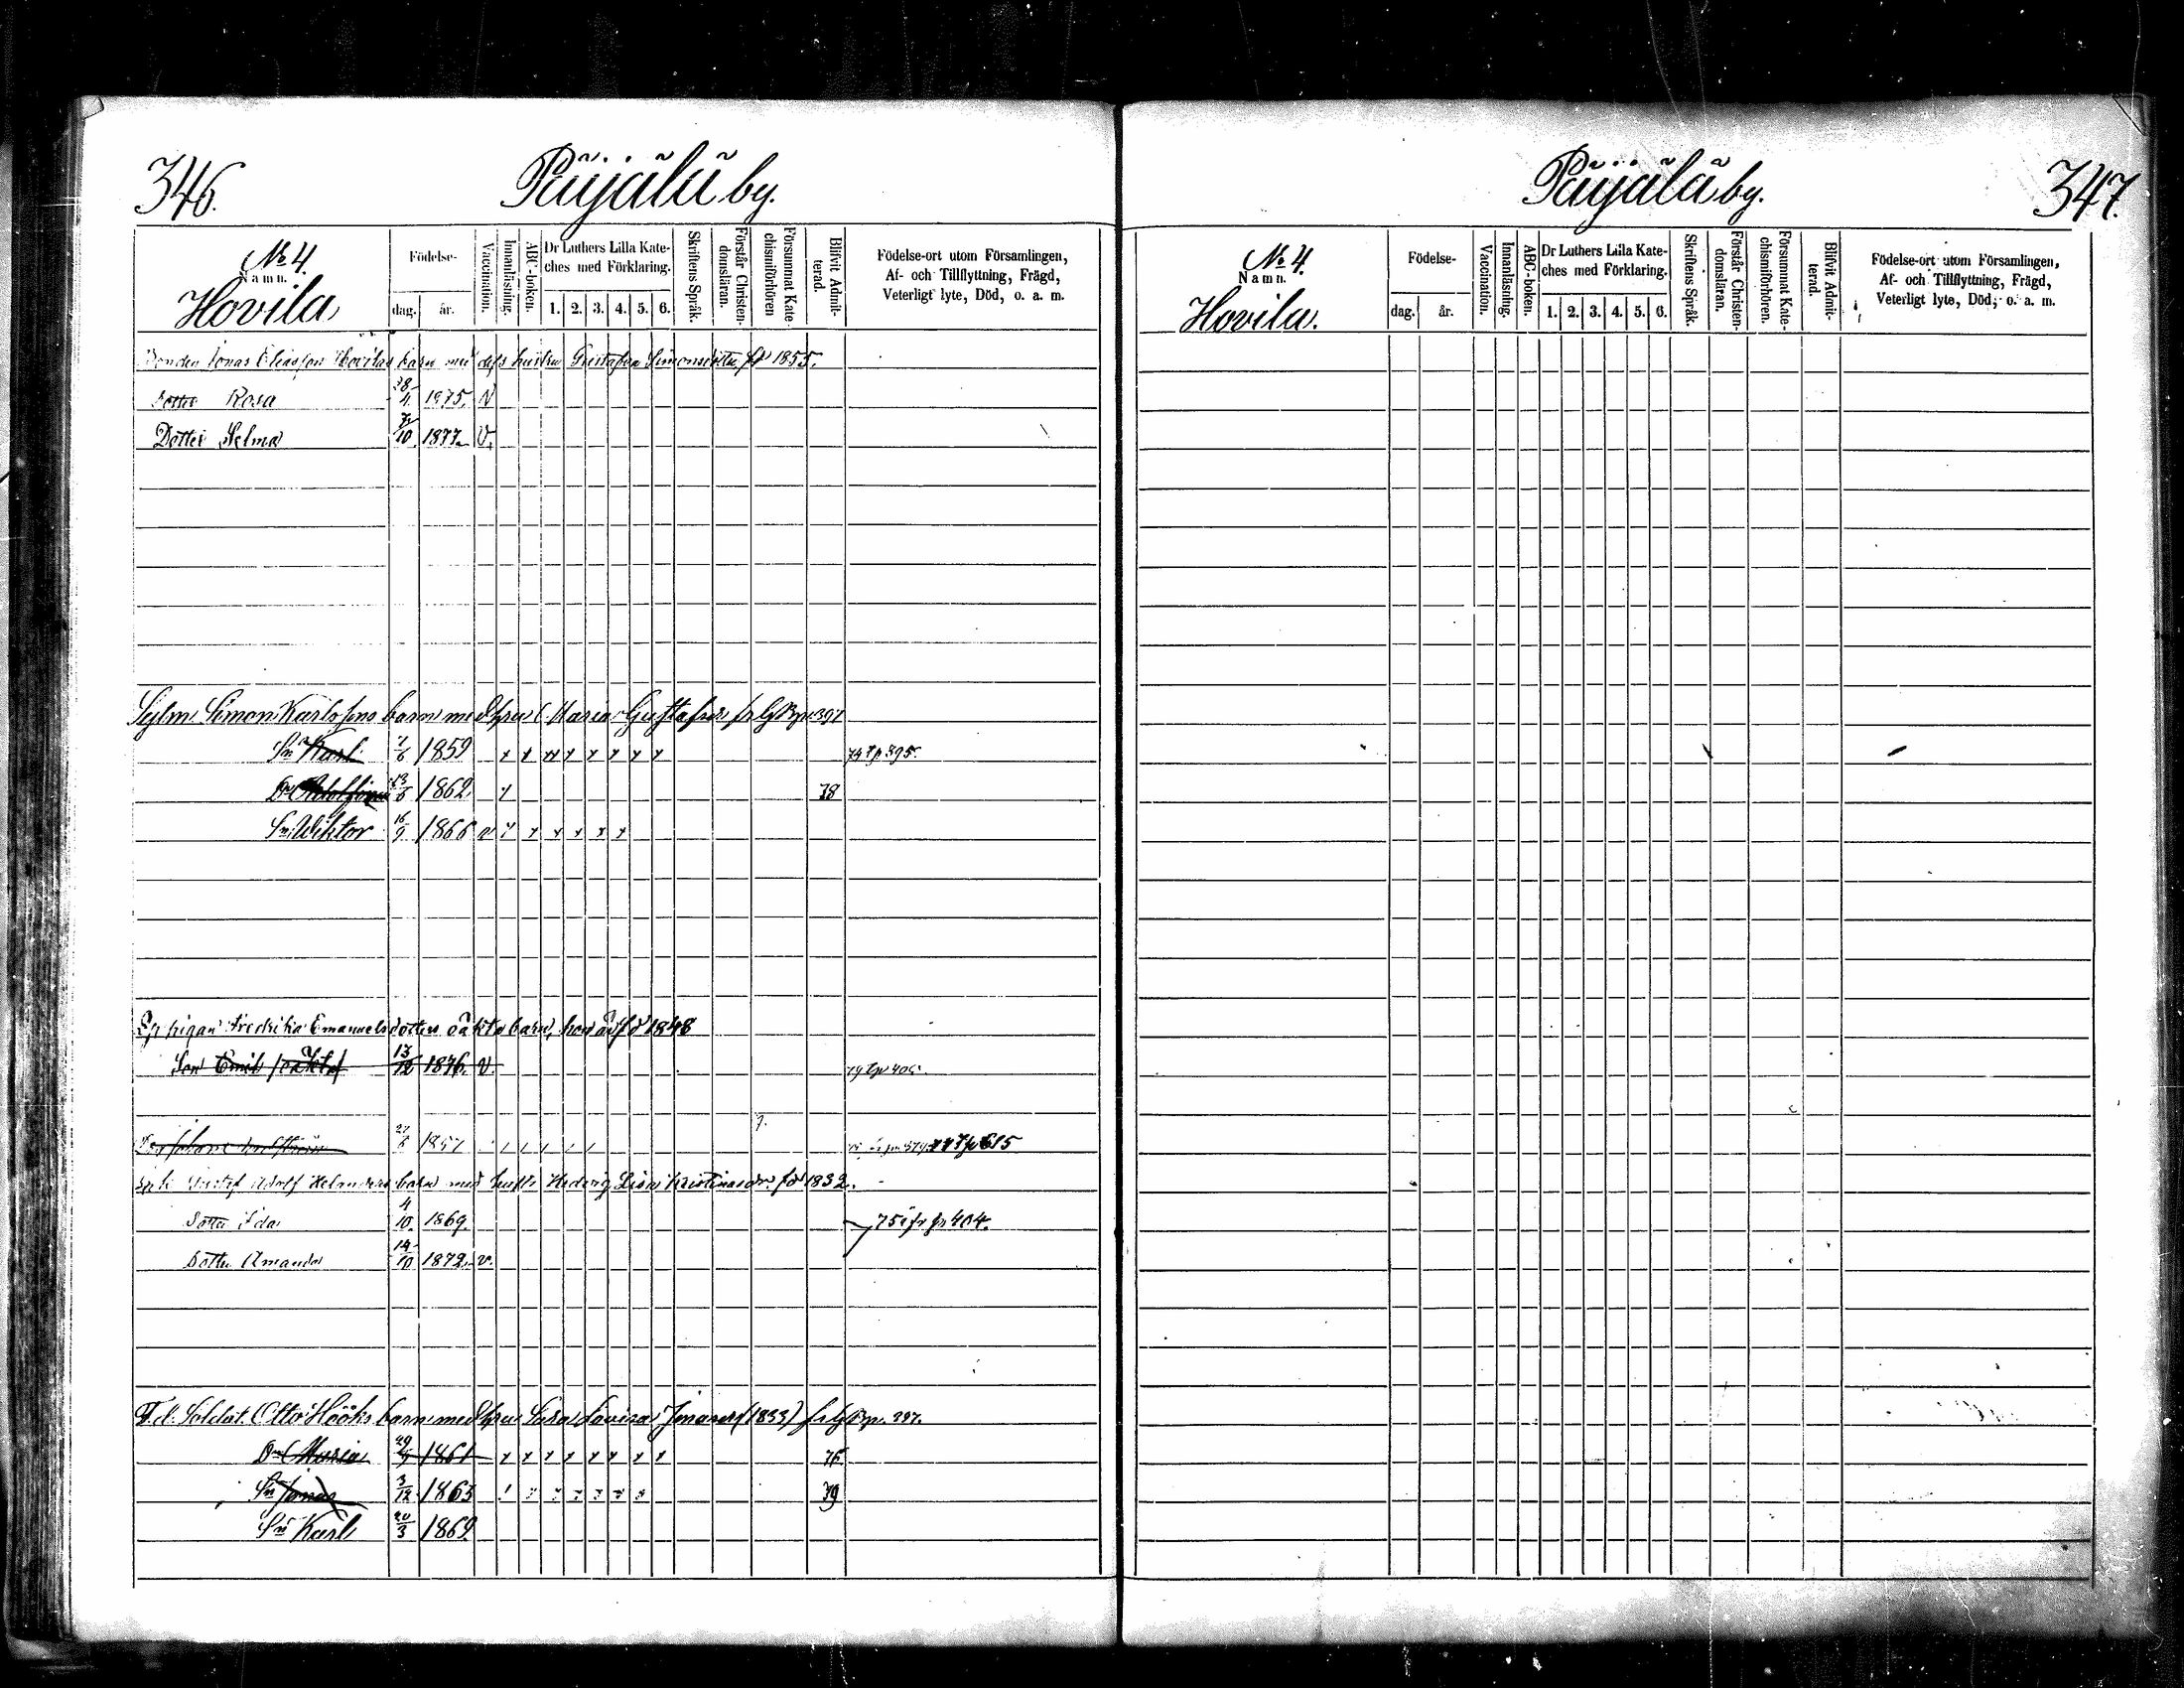 346. Päijälä by.
No 4.
Namn.
Hovila
Födelse-
dag. år.
Vaccination.
Innanläsning.
ABC-boken.
Dr Luthers Lilla Kate-
ches med Förklaring.
1. 2. 3. 4. 5. 6.
Skriftens Språk.
Förstår Christen-
domsläran.
Försummat Kate-
chismiförhören
Blifvit Admit-
terad.
Födelse-ort utom Församlingen,
Af- och Tillflyttning, Frägd,
Veterligt lyte, Död, o. a. m.
Bonden Jonas Eliasson Hovilas barn med dess hustru Gustafva Simonsdotter, fd 1855.
Dotter Rosa 28/11 1875. V
Dotter Selma 10 1877. V.
Simon Karlssons barn med hru Maria Gustafsdr 397
Sn Karl 1/6 1859 x x x x x x x x 395.
Dr Adolfina 13/8 1862 x 78
Sn Wiktor 16/9 1866 v x x x x x x
pigan Fredrika Emanuelsdotters oäkta barn, hon är fd 1848
Son Emil /oäkta/ 13/12 1876. V.
27/8 1857 615
Gustaf Adolf Helanders barn med hustr Hedvig Lisa Kristinasdr. fd 1832.
Dotter Ida 4/10 1869. 75 ifr p 404.
Dotter Amanda 14/10 1872. v.
F. d. Soldat. Otto Hööks barn med hru Sara Lovisa (1833) 397.
Dr Maria 29/9 1861 x x x x x x x x 76
Sn Jonas 3/12 1863 79
Sn Karl 20/3 1869
Päijälä by. 347.
No 4.
Namn.
Hovila.
Födelse-
dag. år.
Vaccination.
Innanläsning.
ABC-boken.
Dr Luthers Lilla Kate-
ches med Förklaring.
1. 2. 3. 4. 5. 6.
Skriftens Språk.
Förstår Christen-
domsläran.
Försummat Kate-
chismiförhören.
Blifvit Admit-
terad.
Födelse-ort utom Församlingen,
Af- och Tillflyttning, Frägd,
Veterligt lyte, Död, o. a. m.